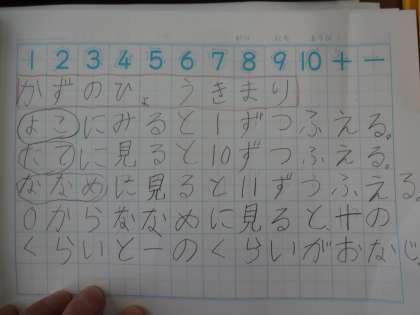 1 2 3 4 5 6 7 8 9 10 + −
かずのひょうきまり
よこにみると1ずつふえる。
たてに見ると10ずつふえる。
ななめに見ると11ずつふえる。
0からななめに見ると、十の
くらいと一のくらいがおなじ。